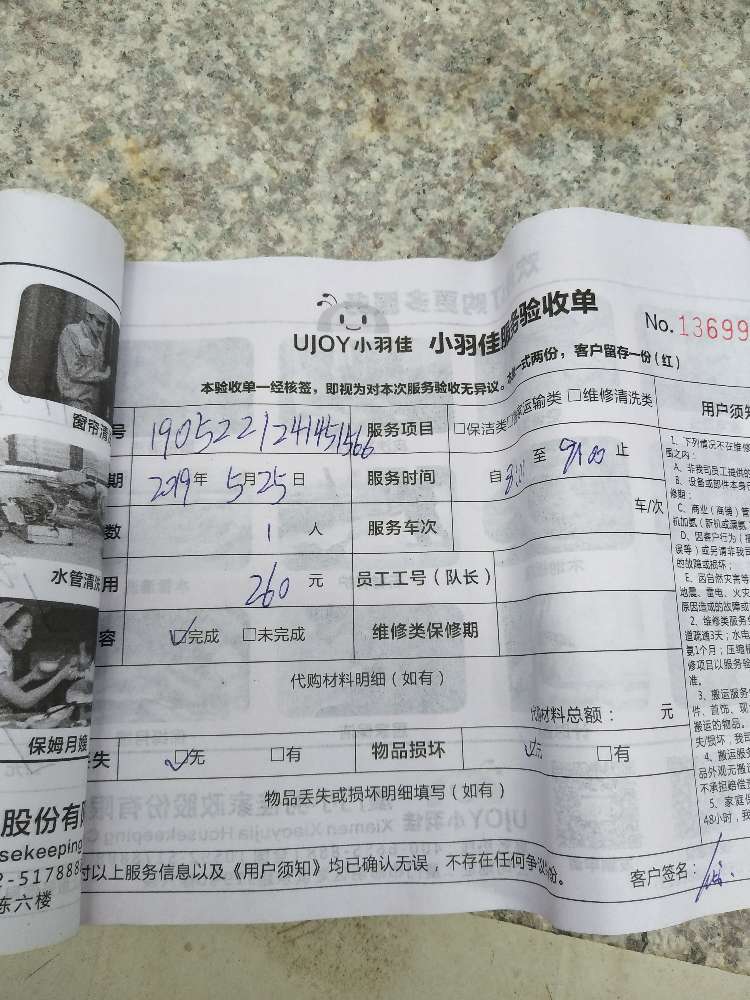 UJOY小羽佳 小羽佳服务验收单
No. 13699
本验收单一经核签，即视为对本次服务验收无异议。本单一式两份，客户留存一份(红)
窗帘清洗
号 1905221241451566 服务项目 □保洁类 运输类 □维修清洗类
用户须知
期 2019年 5月25日 服务时间 自 至 9:00 止
数 1 人 服务车次 车/次
水管清洗
用 260 元 员工工号（队长）
容 ☑完成 □未完成 维修类保修期
代购材料明细（如有）
代购材料总额： 元
保姆月嫂
失 ☑无 □有 物品损坏 ☑无 □有
物品丢失或损坏明细填写（如有）
股份有
sekeeping
2-517888
东六楼
对以上服务信息以及《用户须知》均已确认无误，不存在任何争议。
客户签名：
1、下列情况不在维修
围之内：
A、非我司员工提供的
B、设备或部件本身
修期；
C、商业（商铺）管
D、因客户行为
误等）或另请非我司
的故障或损坏；
E、因自然灾害等
地震、雷电、火灾
原因造成的故障或
2、维修类服务
道疏通3天；水电
氨1个月；压缩机
修项目以服务验
准。
3、搬运服务
件、首饰、现
搬运的物品。
失/损坏，我司
4、搬运服
品外观无搬运
不承担赔偿责
5、家庭保
48小时，我